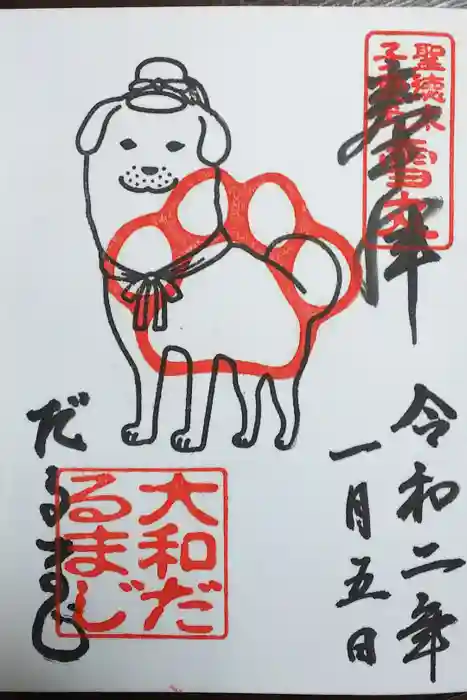 聖徳太
子愛犬
雪丸
奉拝
令和二年
一月五日
だるまじ
大和だ
るまじ